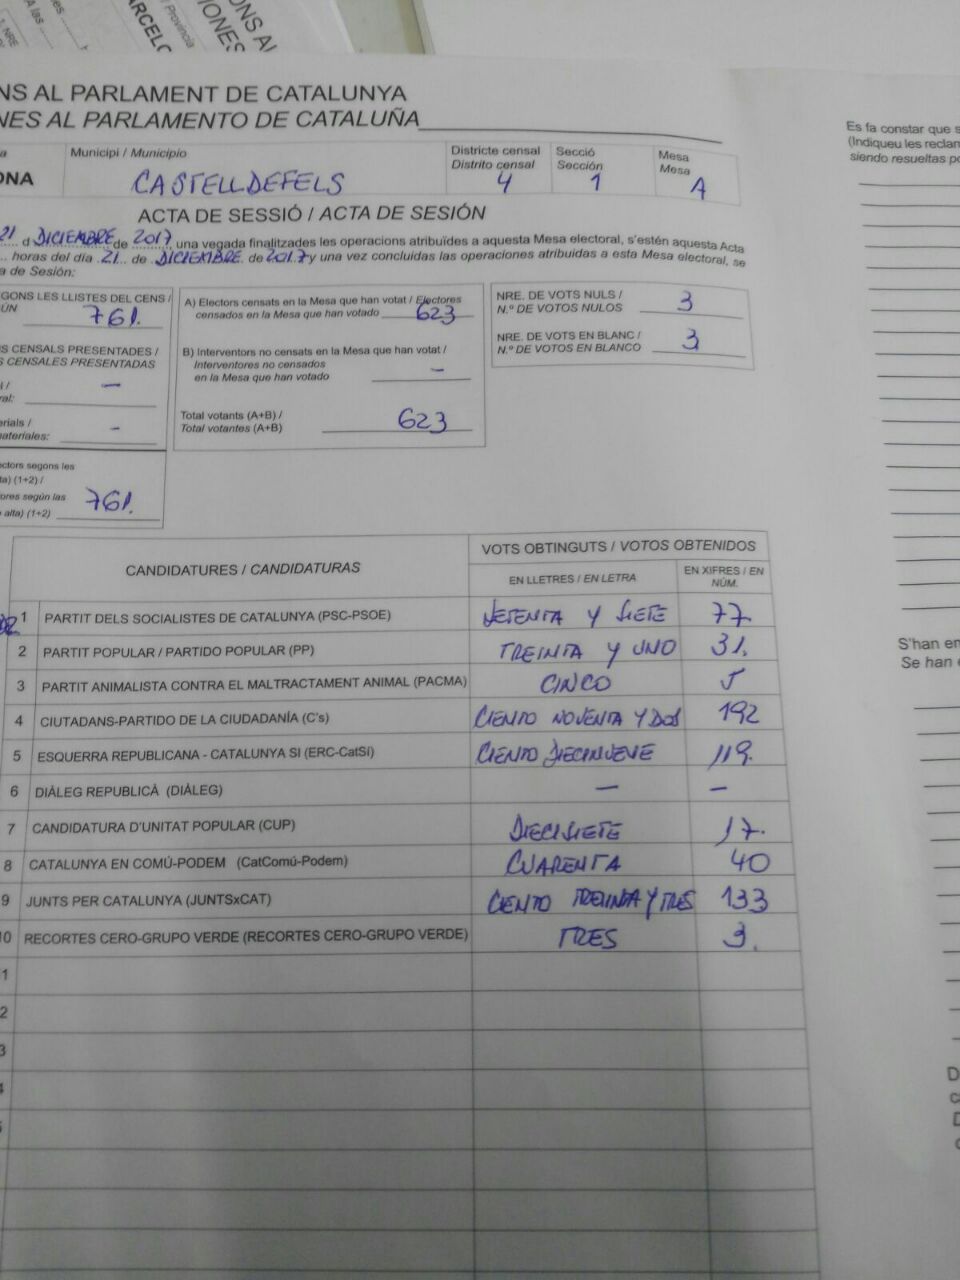 ONS AL
IONES
ARCELO
Província
A las
1. NRE
NS AL PARLAMENT DE CATALUNYA
NES AL PARLAMENTO DE CATALUÑA
Municipi / Municipio
CASTELLDEFELS
Districte censal
Distrito censal
4
Secció
Sección
1
Mesa
Mesa
A
ONA
ACTA DE SESSIÓ / ACTA DE SESIÓN
21 d DICIEMBRE de 2017, una vegada finalitzades les operacions atribuïdes a aquesta Mesa electoral, s'estén aquesta Acta
horas del día 21 de DICIEMBRE de 2017 y una vez concluidas las operaciones atribuidas a esta Mesa electoral, se
a de Sesión:
EGONS LES LLISTES DEL CENS /
ÚN 761.
S CENSALS PRESENTADES /
S CENSALES PRESENTADAS
l /
ral: —
erials /
ateriales: -
ectors segons les
ta) (1+2) /
ores según las
alta) (1+2) 761.
A) Electors censats en la Mesa que han votat / Electores
censados en la Mesa que han votado 623
B) Interventors no censats en la Mesa que han votat /
Interventores no censados
en la Mesa que han votado -
Total votants (A+B) /
Total votantes (A+B) 623
NRE. DE VOTS NULS /
N.º DE VOTOS NULOS 3
NRE. DE VOTS EN BLANC /
N.º DE VOTOS EN BLANCO 3
CANDIDATURES / CANDIDATURAS
VOTS OBTINGUTS / VOTOS OBTENIDOS
EN LLETRES / EN LETRA
EN XIFRES / EN
NÚM.
1 PARTIT DELS SOCIALISTES DE CATALUNYA (PSC-PSOE) SETENTA Y SIETE 77.
2 PARTIT POPULAR / PARTIDO POPULAR (PP) TREINTA Y UNO 31.
3 PARTIT ANIMALISTA CONTRA EL MALTRACTAMENT ANIMAL (PACMA) CINCO 5
4 CIUTADANS-PARTIDO DE LA CIUDADANÍA (C's) CIENTO NOVENTA Y DOS 192
5 ESQUERRA REPUBLICANA - CATALUNYA SI (ERC-CatSí) CIENTO DIECINUEVE 119.
6 DIÀLEG REPUBLICÀ (DIÀLEG) — —
7 CANDIDATURA D'UNITAT POPULAR (CUP) DIECISIETE 17.
8 CATALUNYA EN COMÚ-PODEM (CatComú-Podem) CUARENTA 40
9 JUNTS PER CATALUNYA (JUNTSxCAT) CIENTO TREINTA Y TRES 133
10 RECORTES CERO-GRUPO VERDE (RECORTES CERO-GRUPO VERDE) TRES 3.
1
2
3
4
5
Es fa constar que s
(Indiqueu les reclam
siendo resueltas po
S'han em
Se han e